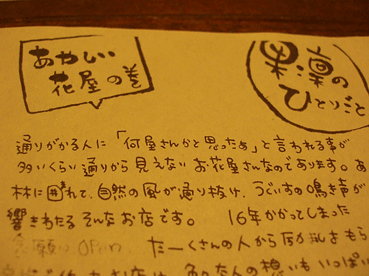 あやしい
花屋の巻
果凛の
ひとりごと
通りがかる人に「何屋さんかと思ったぁ」と言われる事が
多いくらい通りから見えないお花屋さんなのであります。あ
林に囲まれて、自然の風が通り抜け、うぐいすの鳴き声が
響きわたるそんなお店です。 16年かかってしまった
念願の OPEN たーくさんの人から励まし もら
お店は 色んな人の想いもいっぱい